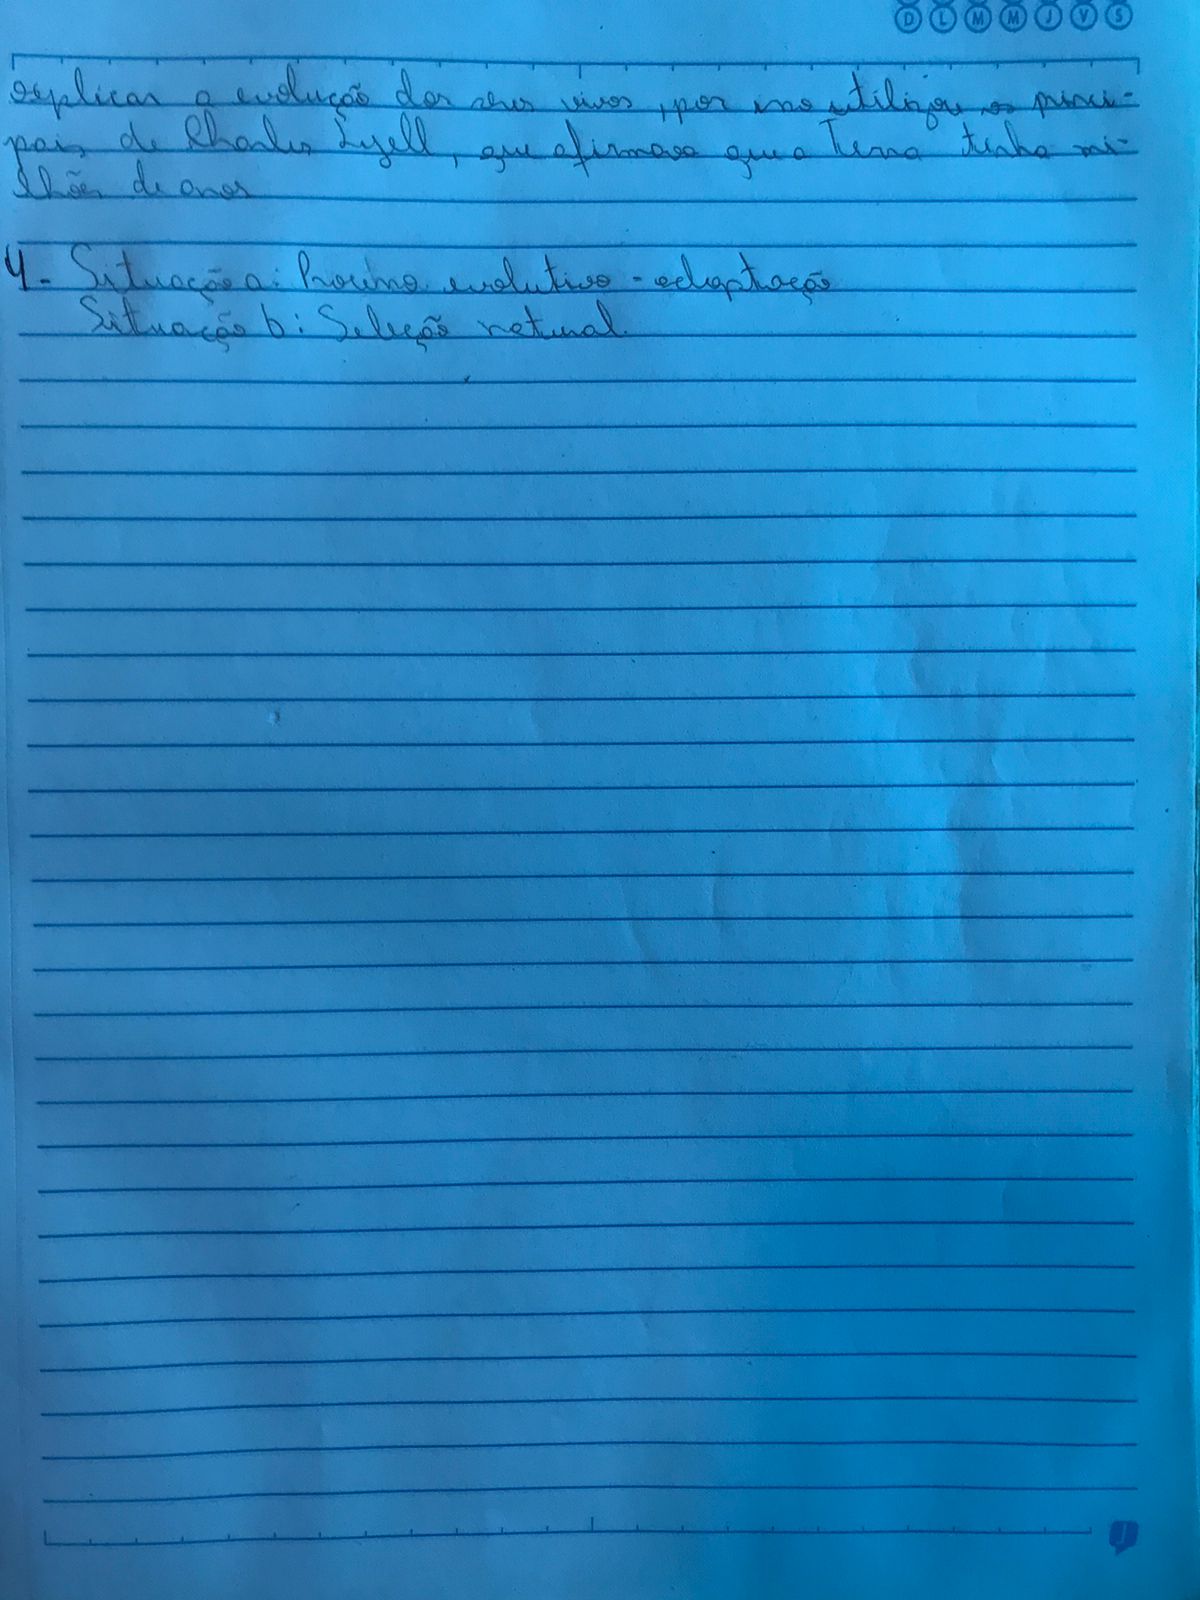 D L M M J V S
explicar a evolução dos seres vivos, por isso utilizou os princi-
pais de Charles Lyell, que afirmava que a Terra tinha mi-
lhões de anos
4- Situação a: Processo evolutivo - adaptação
Situação b: Seleção natural.